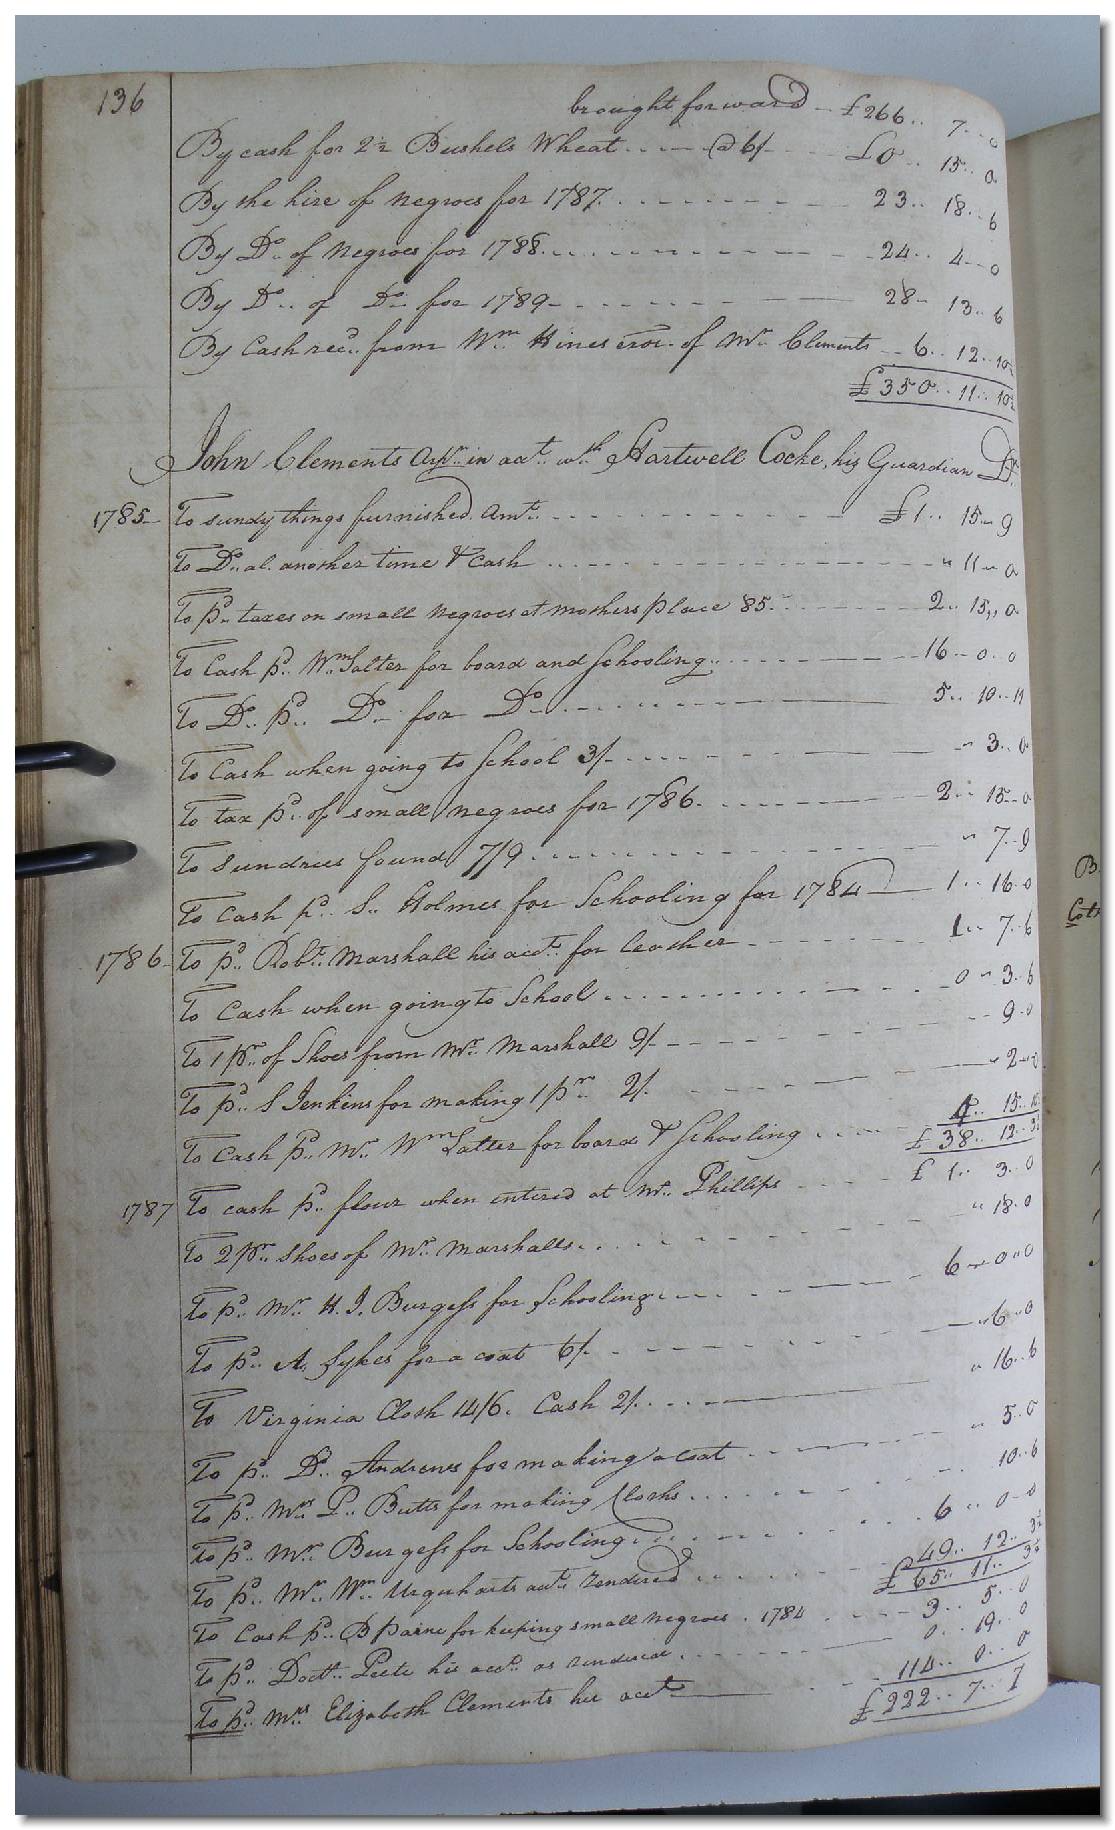 136
brought forward – £266.. 7.. 0
By cash for 2½ Bushels Wheat .. – @ 6/ – £0.. 15.. 0
By the hire of negroes for 1787 . . . . 23.. 18.. 6
By Do. of negroes for 1788 . . . . 24.. 4.. 0
By Do. of Do. for 1789 – . . . . 28 – 13.. 6
By Cash recd. from Wm. Hines exor. of Mr. Clements – 6.. 12.. 10½
£350.. 11.. 10½
John Clements Orpn. in acct. wth. Hartwell Cocke, his Guardian Dr.
1785 – To sundy things furnished Amt. . . . . £1.. 15.. 9
To Do. at another time & Cash . . . . " 11 – 0
To pd. taxes on small negroes at mothers place 85. . . . 2.. 15.. 0
To Cash pd. Wm. Salter for board and Schooling . . . . 16 – 0.. 0
To Do. pd. Do. for Do. . . . . 5.. 10.. 11
To Cash when going to School 3/ . . . . " 3.. 0
To tax pd. of small negroes for 1786 . . . . 2.. 15.. 0
To Sundrees found 7/9 . . . . " 7.. 9
To Cash pd. S. Holmes for Schooling for 1784 – 1.. 16.. 0
1786 – To pd. Robt. Marshall his acct. for leather . . . . 1.. 7.. 6
To Cash when going to School . . . . 0 – 3.. 6
To 1 pr. of Shoes from Mr. Marshall 9/ – – – 9.. 0
To pd. S Jenkins for making 1 pr. 2/. – – – " 2.. 0
To Cash pd. Mr. Wm Salter for board & Schooling . . . . 4.. 15..
£38.. 12.. 3½
1787 To cash pd. flour when entered at Mr. Phillips . . . . £1.. 3.. 0
To 2 pr. Shoes of Mr. Marshalls . . . . " 18.. 0
To pd. Mr. H. J. Burgess for Schooling . . . . 6 – 0 " 0
To pd. A. Sykes for a coat 6/. . . . . " 6 – 0
To Virginia Cloth 14/6. Cash 2/. . . . . " 16.. 6
To pd. D. Andrews for making a coat . . . . " 5.. 0
To pd. Mrs P. Butts for making Cloths . . . . 10.. 6
To pd. Mr. Burgess for Schooling . . . . 6.. 0 – 0
To pd. Mr. Wm. Urquharts acct. rendered . . . . 49.. 12.. 3½
£65.. 11.. 3½
To Cash pd. B Paine for keeping small negroes . 1784 . . . . 3.. 5.. 0
To pd. Doctr. Peete his acct. as rendered . . . . 0.. 19.. 0
To pd. Mrs Elizabeth Clements her acct. – 114.. 0.. 0
£222.. 7.. 7
B.